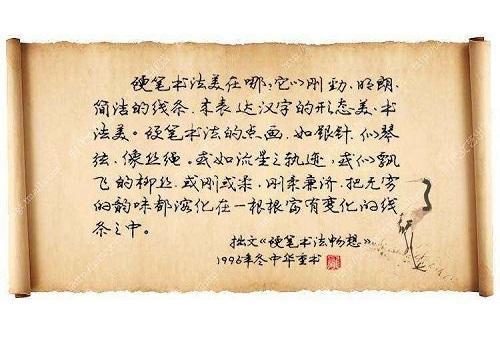 硬笔书法美在哪：它以刚劲、明朗、
简洁的线条，来表达汉字的形态美、书
法美。硬笔书法的点画，如银针，似琴
弦，像丝绳。或如流星之轨迹，或似飘
飞的柳丝，或刚或柔，刚柔兼济，把无穷
的韵味都溶化在一根根富有变化的线
条之中。
拙文《硬笔书法畅想》
1996年冬中华重书